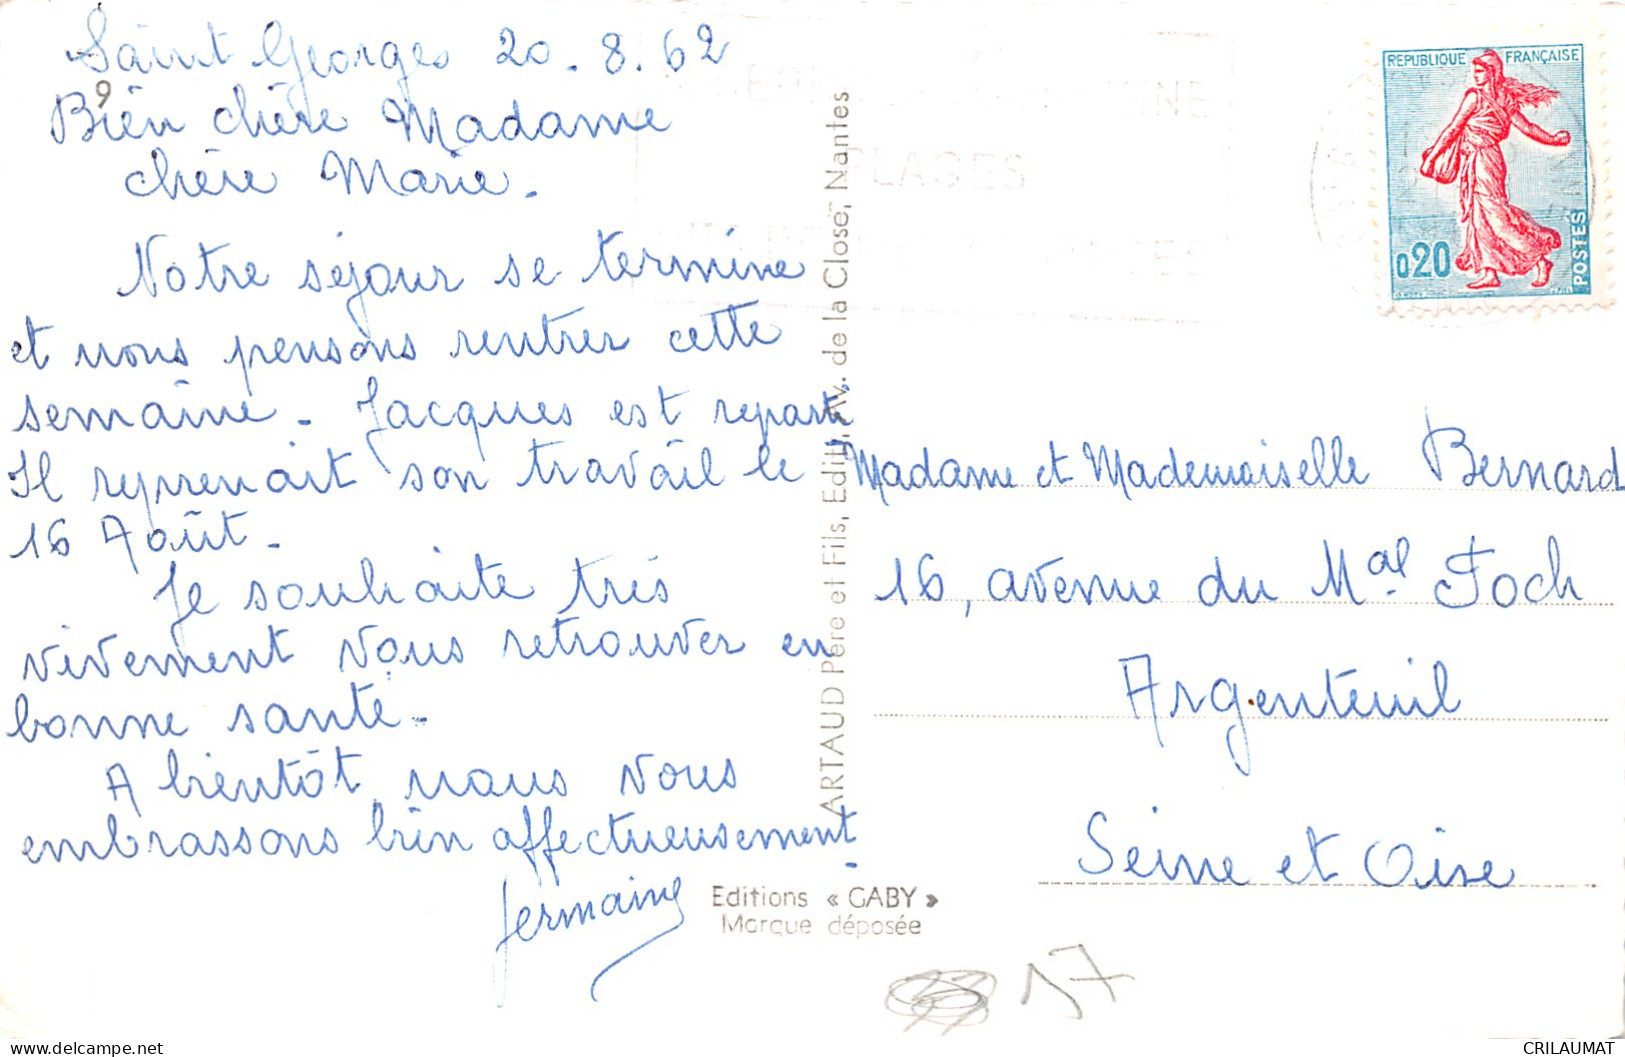 Saint Georges 20.8.62
9
Bien chère Madame
chère Marie.
Notre séjour se termine
et nous pensons rentrer cette
semaine. Jacques est reparti
Il reprenait son travail le
16 Août.
Je souhaite très
vivement vous retrouver en
bonne santé.
A bientôt, nous vous
embrassons bien affectueusement.
Germaine
ARTAUD Père et Fils, Edit., Av. de la Close, Nantes
Editions « GABY »
Marque déposée
PLAGES
REPUBLIQUE FRANÇAISE
0,20
POSTES
Madame et Mademoiselle Bernard
16, avenue du Mal. Foch
Argenteuil
Seine et Oise
17
delcampe.net
CRILAUMAT